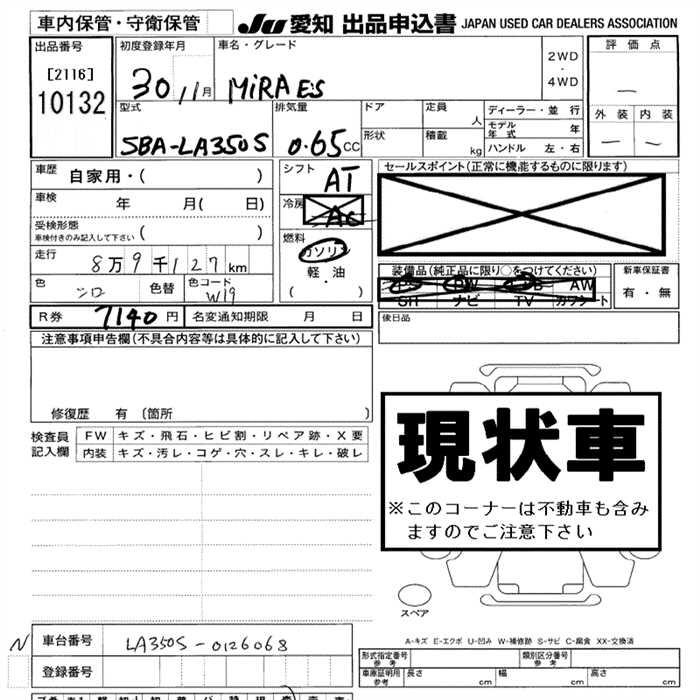 車内保管・守衛保管 JU 愛知 出品申込書 JAPAN USED CAR DEALERS ASSOCIATION
出品番号 初度登録年月 車名・グレード 評価点
[2116] 30 11月 MiRA ES 2WD ・ 4WD —
10132 外装 内装
型式 排気量 ドア 定員 人 ディーラー・並行
モデル年式 年
SBA-LA350S 0.65CC 形状 積載 kg ハンドル 左・右 — —
車歴 自家用・( ) シフト AT セールスポイント(正常に機能するものに限ります)
車検 年 月( 日) 冷房 AC
受検形態 車検付きのみ記入して下さい ( ) 燃料 ガソリン
走行 8万9千127km 軽・油 装備品(純正品に限り○をつけてください) 新車保証書
色 シロ 色替 色コード W19 ( ) PS PW AB AW 有・無
SR ナビ TV カワシート
R券 7140円 名変通知期限 月 日 後日品
注意事項申告欄(不具合内容等は具体的に記入して下さい)
修復歴 有 (箇所 )
現状車
※このコーナーは不動車も含みますのでご注意下さい
検査員記入欄 FW キズ・飛石・ヒビ割・リペア跡・X要
内装 キズ・汚レ・コゲ・穴・スレ・キレ・破レ
スペア
A-キズ E-エクボ U-凹み W-補修跡 S-サビ C-腐食 XX-交換済
N 車台番号 LA350S-0126068
登録番号
型式指定番号 参考 類別区分番号 参考
車庫証明用 参考 長さ cm 幅 cm 高さ cm